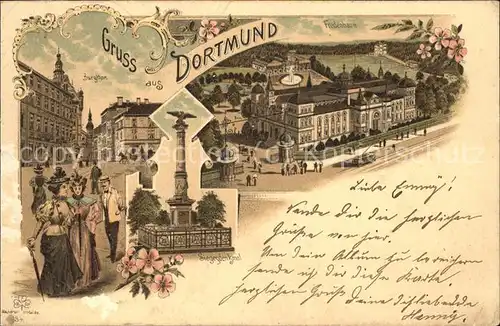 Gruss
aus
DORTMUND
Burgthor
Fredenbaum
Siegesdenkmal
Liebe Emmy!
Sende Dir die herzlichen
Grüße von hier.
Um Dein Album zu bereichern
sende ich Dir diese Karte.
Herzliche Grüße Deine Dichliebende
Henny